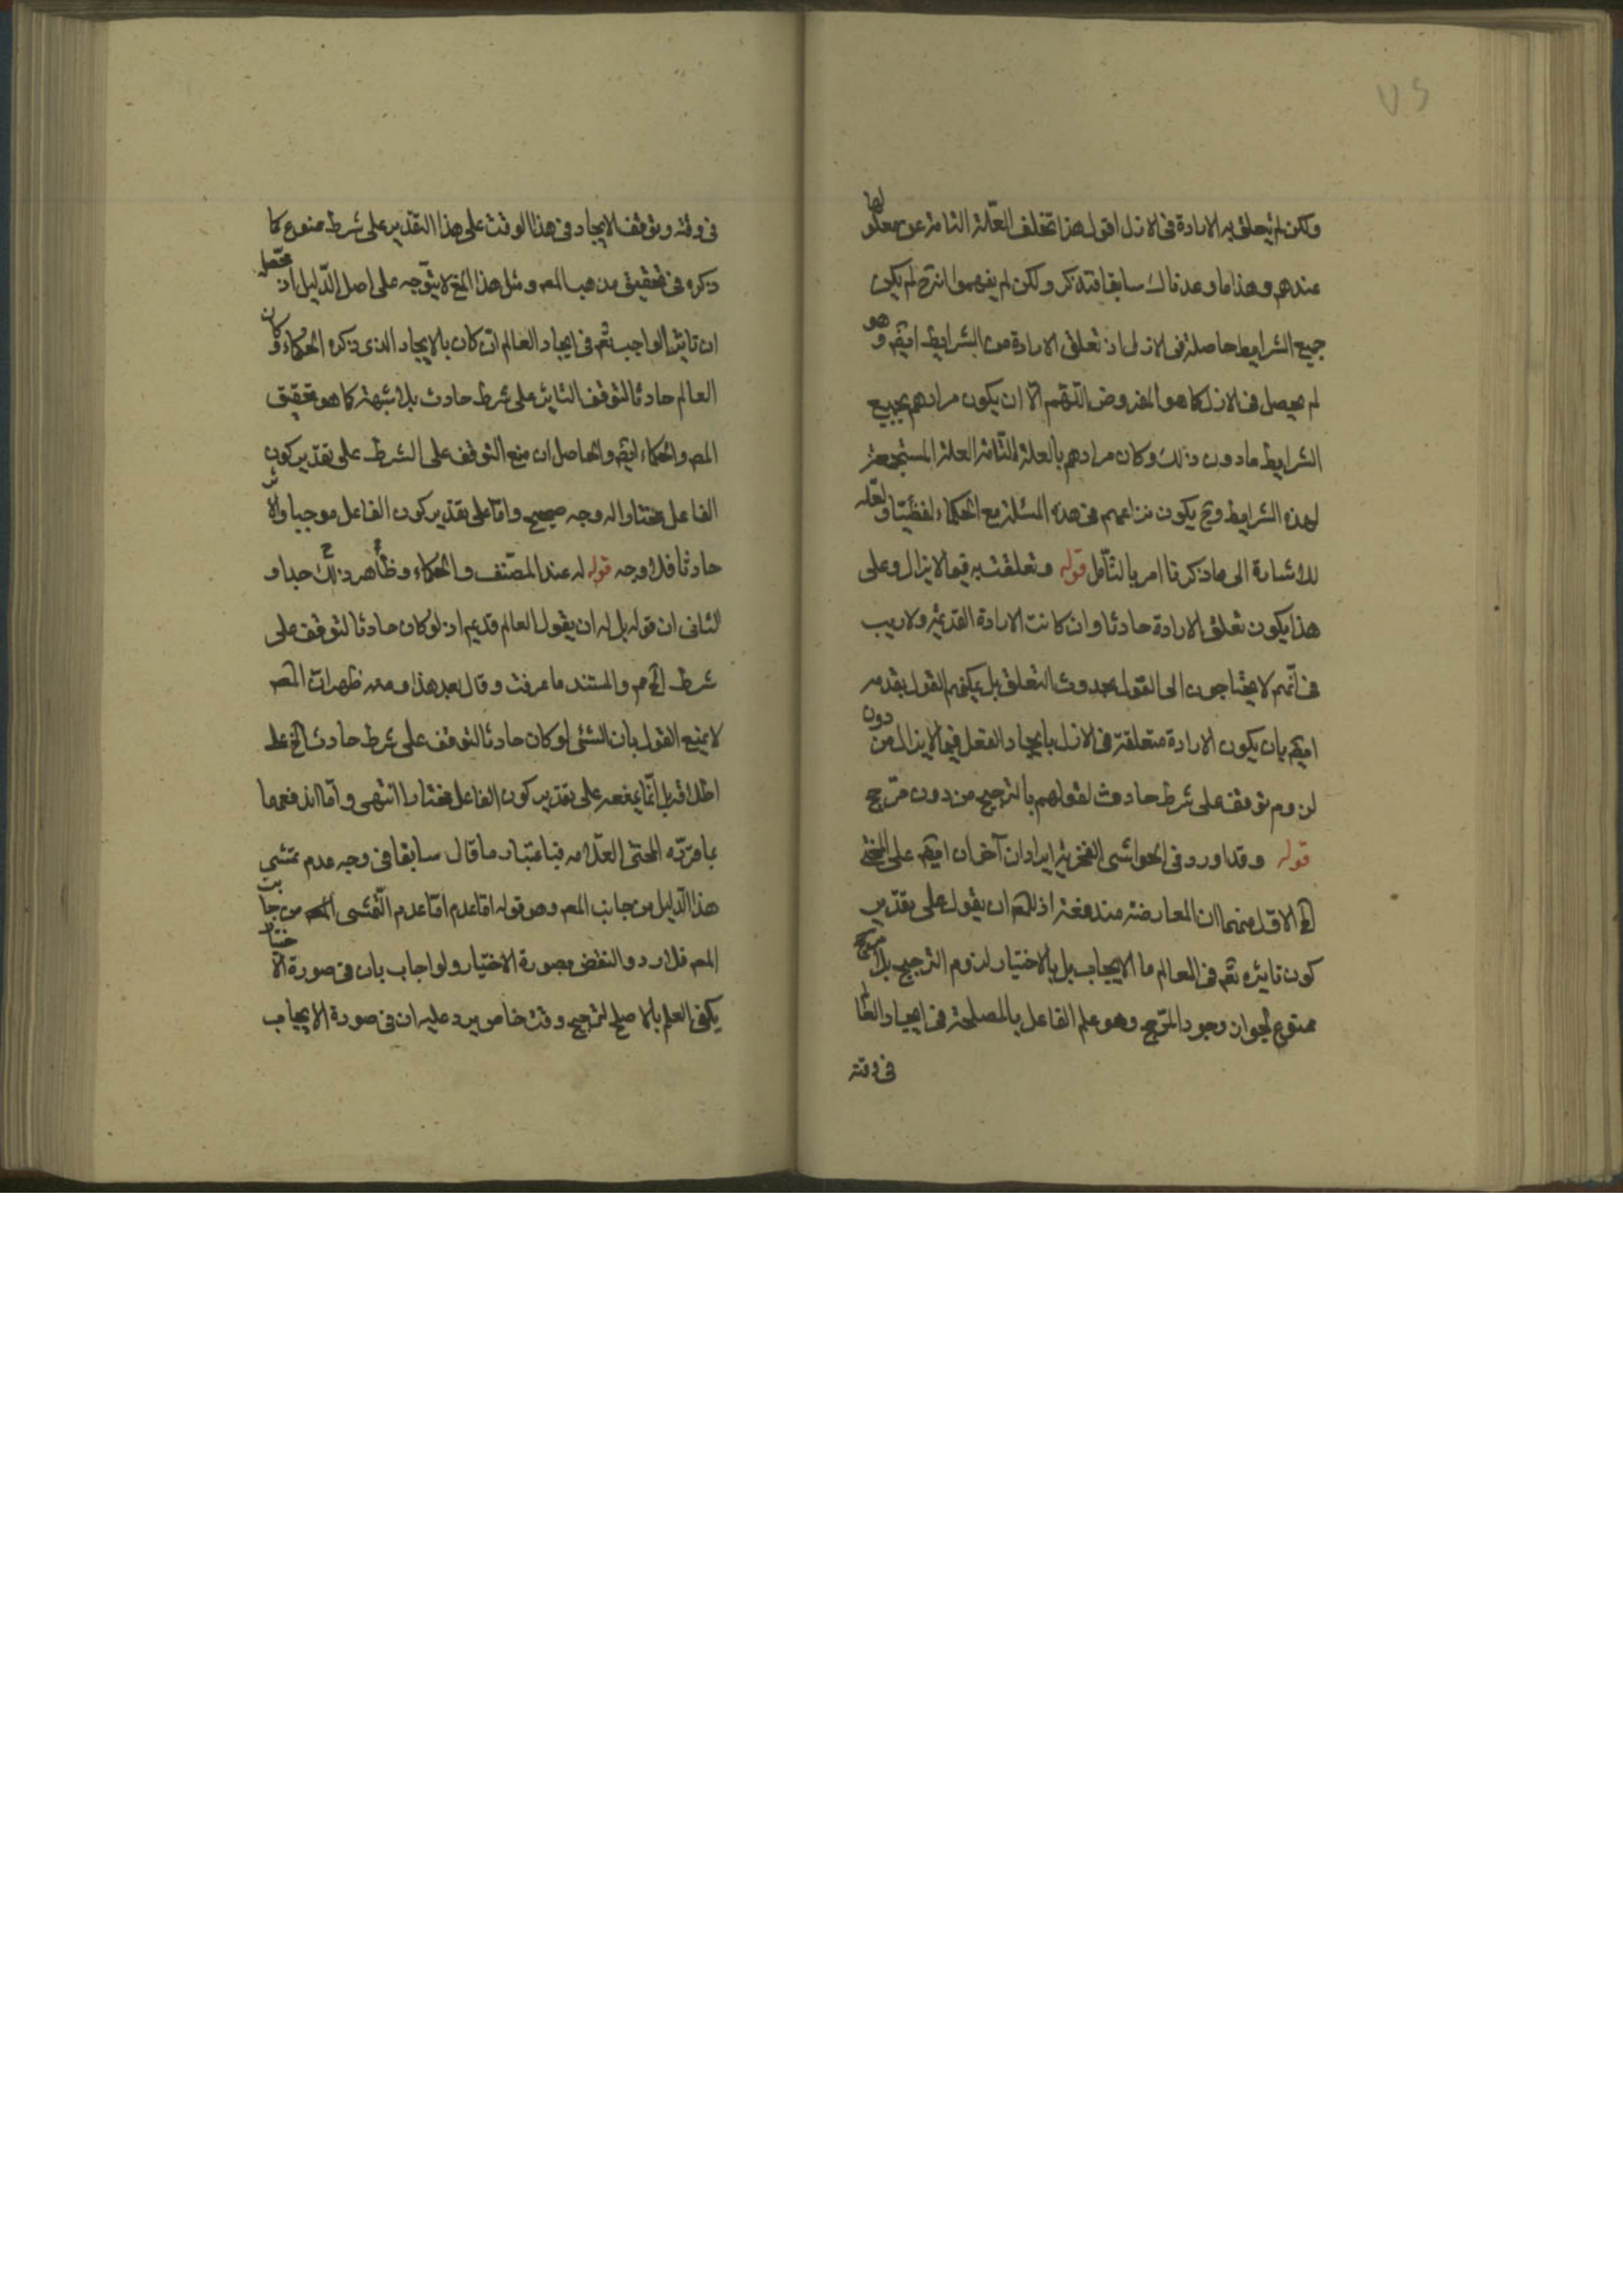 ولكن لم يتعلق به الارادة فى الازل اقول هذا تخلف العلة التامة عن معلولها
عندهم وهذا ما وعدناك سابقا فتذكر ولكن لم يفهموا انه ح لم يكن
جميع الشرايط حاصلة فى الازل اذ تعلق الارادة من الشرايط ايضم وهو
لم يحصل فى الازل كما هو المفروض اللهم الا ان يكون مرادهم بجميع
الشرايط مادون ذلك وكان مرادهم بالعلة التامة العلة المستجمعة
لهذه الشرايط وح يكون نزاعهم فى هذه المسئلة مع الحكماء لفظيا ولعله
للاشارة الى ما ذكرنا امر بالتأمل قوله وتعلقت به فيما لا يزال وعلى
هذا يكون تعلق الارادة حادثا وان كانت الارادة القديمة ولا ريب
فى انهم لا يحتاجون الى القول بحدوث التعلق بل يكفيهم القول بقدمه
ايضم بان يكون الارادة متعلقة فى الازل بايجاد الفعل فيما لا يزال من دون
لزوم توقف على شرط حادث لقولهم بالترجيح من دون مرجح
قوله وقد اورد فى الحواشى الفخرية ايرادان آخران ايضم على
الخ الاول منهما ان المعارضة مندفعة اذ للمصم ان يقول على تقدير
كون تاثيره تعم فى العالم ما الايجاب بل بالاختيار لزوم الترجيح بلا مرجح
ممنوع لجواز وجود المرجح وهو علم الفاعل بالمصلحة فى ايجاد العالم
فى وقته
فى وقته وتوقف الايجاد فى هذا الوقت على هذا التقدير على شرط ممنوع كما
ذكره فى تحقيق مذهب المصم ومثل هذا المنع لا يتوجه على اصل الدليل اذ محصله
ان تاثير الواجب تعم فى ايجاد العالم ان كان بالايجاد الذى ذكره الحكماء وكان
العالم حادثا لتوقف التاثير على شرط حادث بلا شبهة كما هو تحقيق
المصم والحكماء ايضم والحاصل ان منع التوقف على الشرط على تقدير كون
الفاعل مختارا له وجه صحيح واما على تقدير كون الفاعل موجبا والاثر
حادثا فلا وجه قوله له عند المصنف والحكماء وظاهر ذلك جدا و
الثانى ان قوله بل له ان يقول العالم قديم اذ لو كان حادثا لتوقف على
شرط الخ مم والمستند ما عرفت وقال بعد هذا ومنه ظهر ان المصم
لا يمنع القول بان الشئ لو كان حادثا لتوقف على شرط حادث الخ على
اطلاقه بل انما يمنعه على تقدير كون الفاعل مختارا انتهى واما اندفعهما
بما قرره المحشى العلامه فباعتبار ما قال سابقا فى وجه عدم تمشى
هذا الدليل من جانب المصم وهو قوله اما عدم اما عدم التمشى من جانب
المصم فلا رد والنقض بصورة الاختيار ولو اجاب بان فى صورة الاختيار
يكفى العلم بالاصلح لترجيح وقت خاص يرد عليه ان فى صورة الايجاب